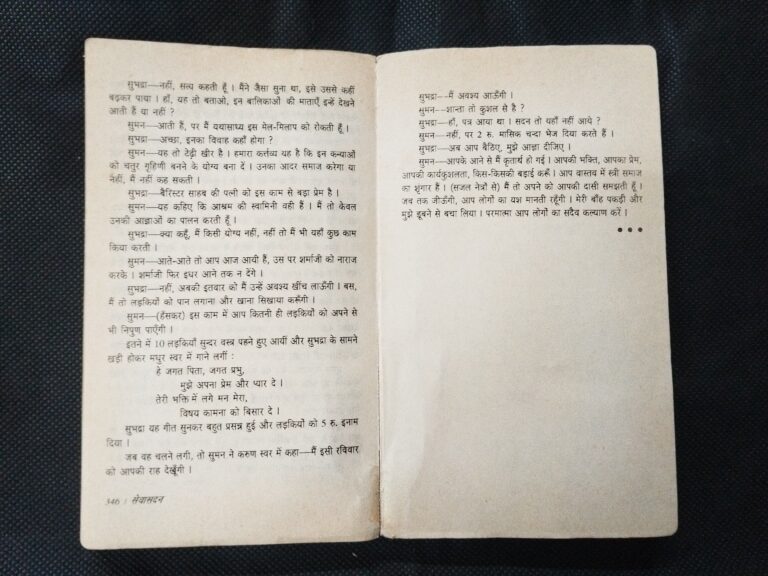 सुभद्रा—नहीं, सत्य कहती हूँ । मैंने जैसा सुना था, इसे उससे कहीं
बढ़कर पाया । हाँ, यह तो बताओ, इन बालिकाओं की माताएँ इन्हें देखने
आती हैं या नहीं ?
सुमन—आती हैं, पर मैं यथासाध्य इस मेल-मिलाप को रोकती हूँ ।
सुभद्रा—अच्छा, इनका विवाह कहाँ होगा ?
सुमन—यह तो टेढ़ी खीर है । हमारा कर्त्तव्य यह है कि इन कन्याओं
को चतुर गृहिणी बनने के योग्य बना दें । उनका आदर समाज करेगा या
नहीं, मैं नहीं कह सकती ।
सुभद्रा—बैरिस्टर साहब की पत्नी को इस काम से बड़ा प्रेम है ।
सुमन—यह कहिए कि आश्रम की स्वामिनी वही हैं । मैं तो केवल
उनकी आज्ञाओं का पालन करती हूँ ।
सुभद्रा—क्या कहूँ, मैं किसी योग्य नहीं, नहीं तो मैं भी यहाँ कुछ काम
किया करती ।
सुमन—आते-आते तो आप आज आयी हैं, उस पर शर्माजी को नाराज
करके । शर्माजी फिर इधर आने तक न देंगे ।
सुभद्रा—नहीं, अबकी इतवार को मैं उन्हें अवश्य खींच लाऊँगी । बस,
मैं तो लड़कियों को पान लगाना और खाना सिखाया करूँगी ।
सुमन—(हँसकर) इस काम में आप कितनी ही लड़कियों को अपने से
भी निपुण पाएँगी ।
इतने में 10 लड़कियाँ सुन्दर वस्त्र पहने हुए आयीं और सुभद्रा के सामने
खड़ी होकर मधुर स्वर में गाने लगीं :
हे जगत पिता, जगत प्रभु,
मुझे अपना प्रेम और प्यार दे ।
तेरी भक्ति में लगे मन मेरा,
विषय कामना को बिसार दे ।
सुभद्रा यह गीत सुनकर बहुत प्रसन्न हुई और लड़कियों को 5 रु. इनाम
दिया ।
जब वह चलने लगी, तो सुमन ने करुण स्वर में कहा—मैं इसी रविवार
को आपकी राह देखूँगी ।
346 : सेवासदन
सुभद्रा--मैं अवश्य आऊँगी ।
सुमन—शान्ता तो कुशल से है ?
सुभद्रा—हाँ, पत्र आया था । सदन तो यहाँ नहीं आये ?
सुमन—नहीं, पर 2 रु. मासिक चन्दा भेज दिया करते हैं ।
सुभद्रा—अब आप बैठिए, मुझे आज्ञा दीजिए ।
सुमन—आपके आने से मैं कृतार्थ हो गई । आपकी भक्ति, आपका प्रेम,
आपकी कार्यकुशलता, किस-किसकी बड़ाई करूँ । आप वास्तव में स्त्री समाज
का शृंगार हैं । (सजल नेत्रों से) मैं तो अपने को आपकी दासी समझती हूँ ।
जब तक जीऊँगी, आप लोगों का यश मानती रहूँगी । मेरी बाँह पकड़ी और
मुझे डूबने से बचा लिया । परमात्मा आप लोगों का सदैव कल्याण करें ।
•••